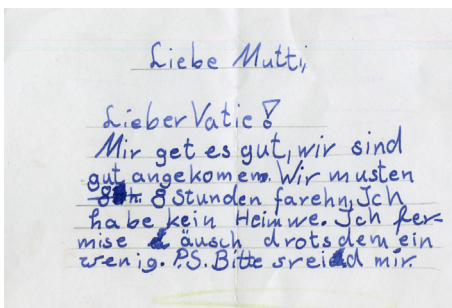 Liebe Mutti,
Lieber Vatie!
Mir get es gut, wir sind
gut angekomen. Wir musten
8 Stunden farehn, Ich
habe kein Heimwe. Ich fer-
mise äusch drotsdem ein
wenig. P.S. Bitte sreidd mir.